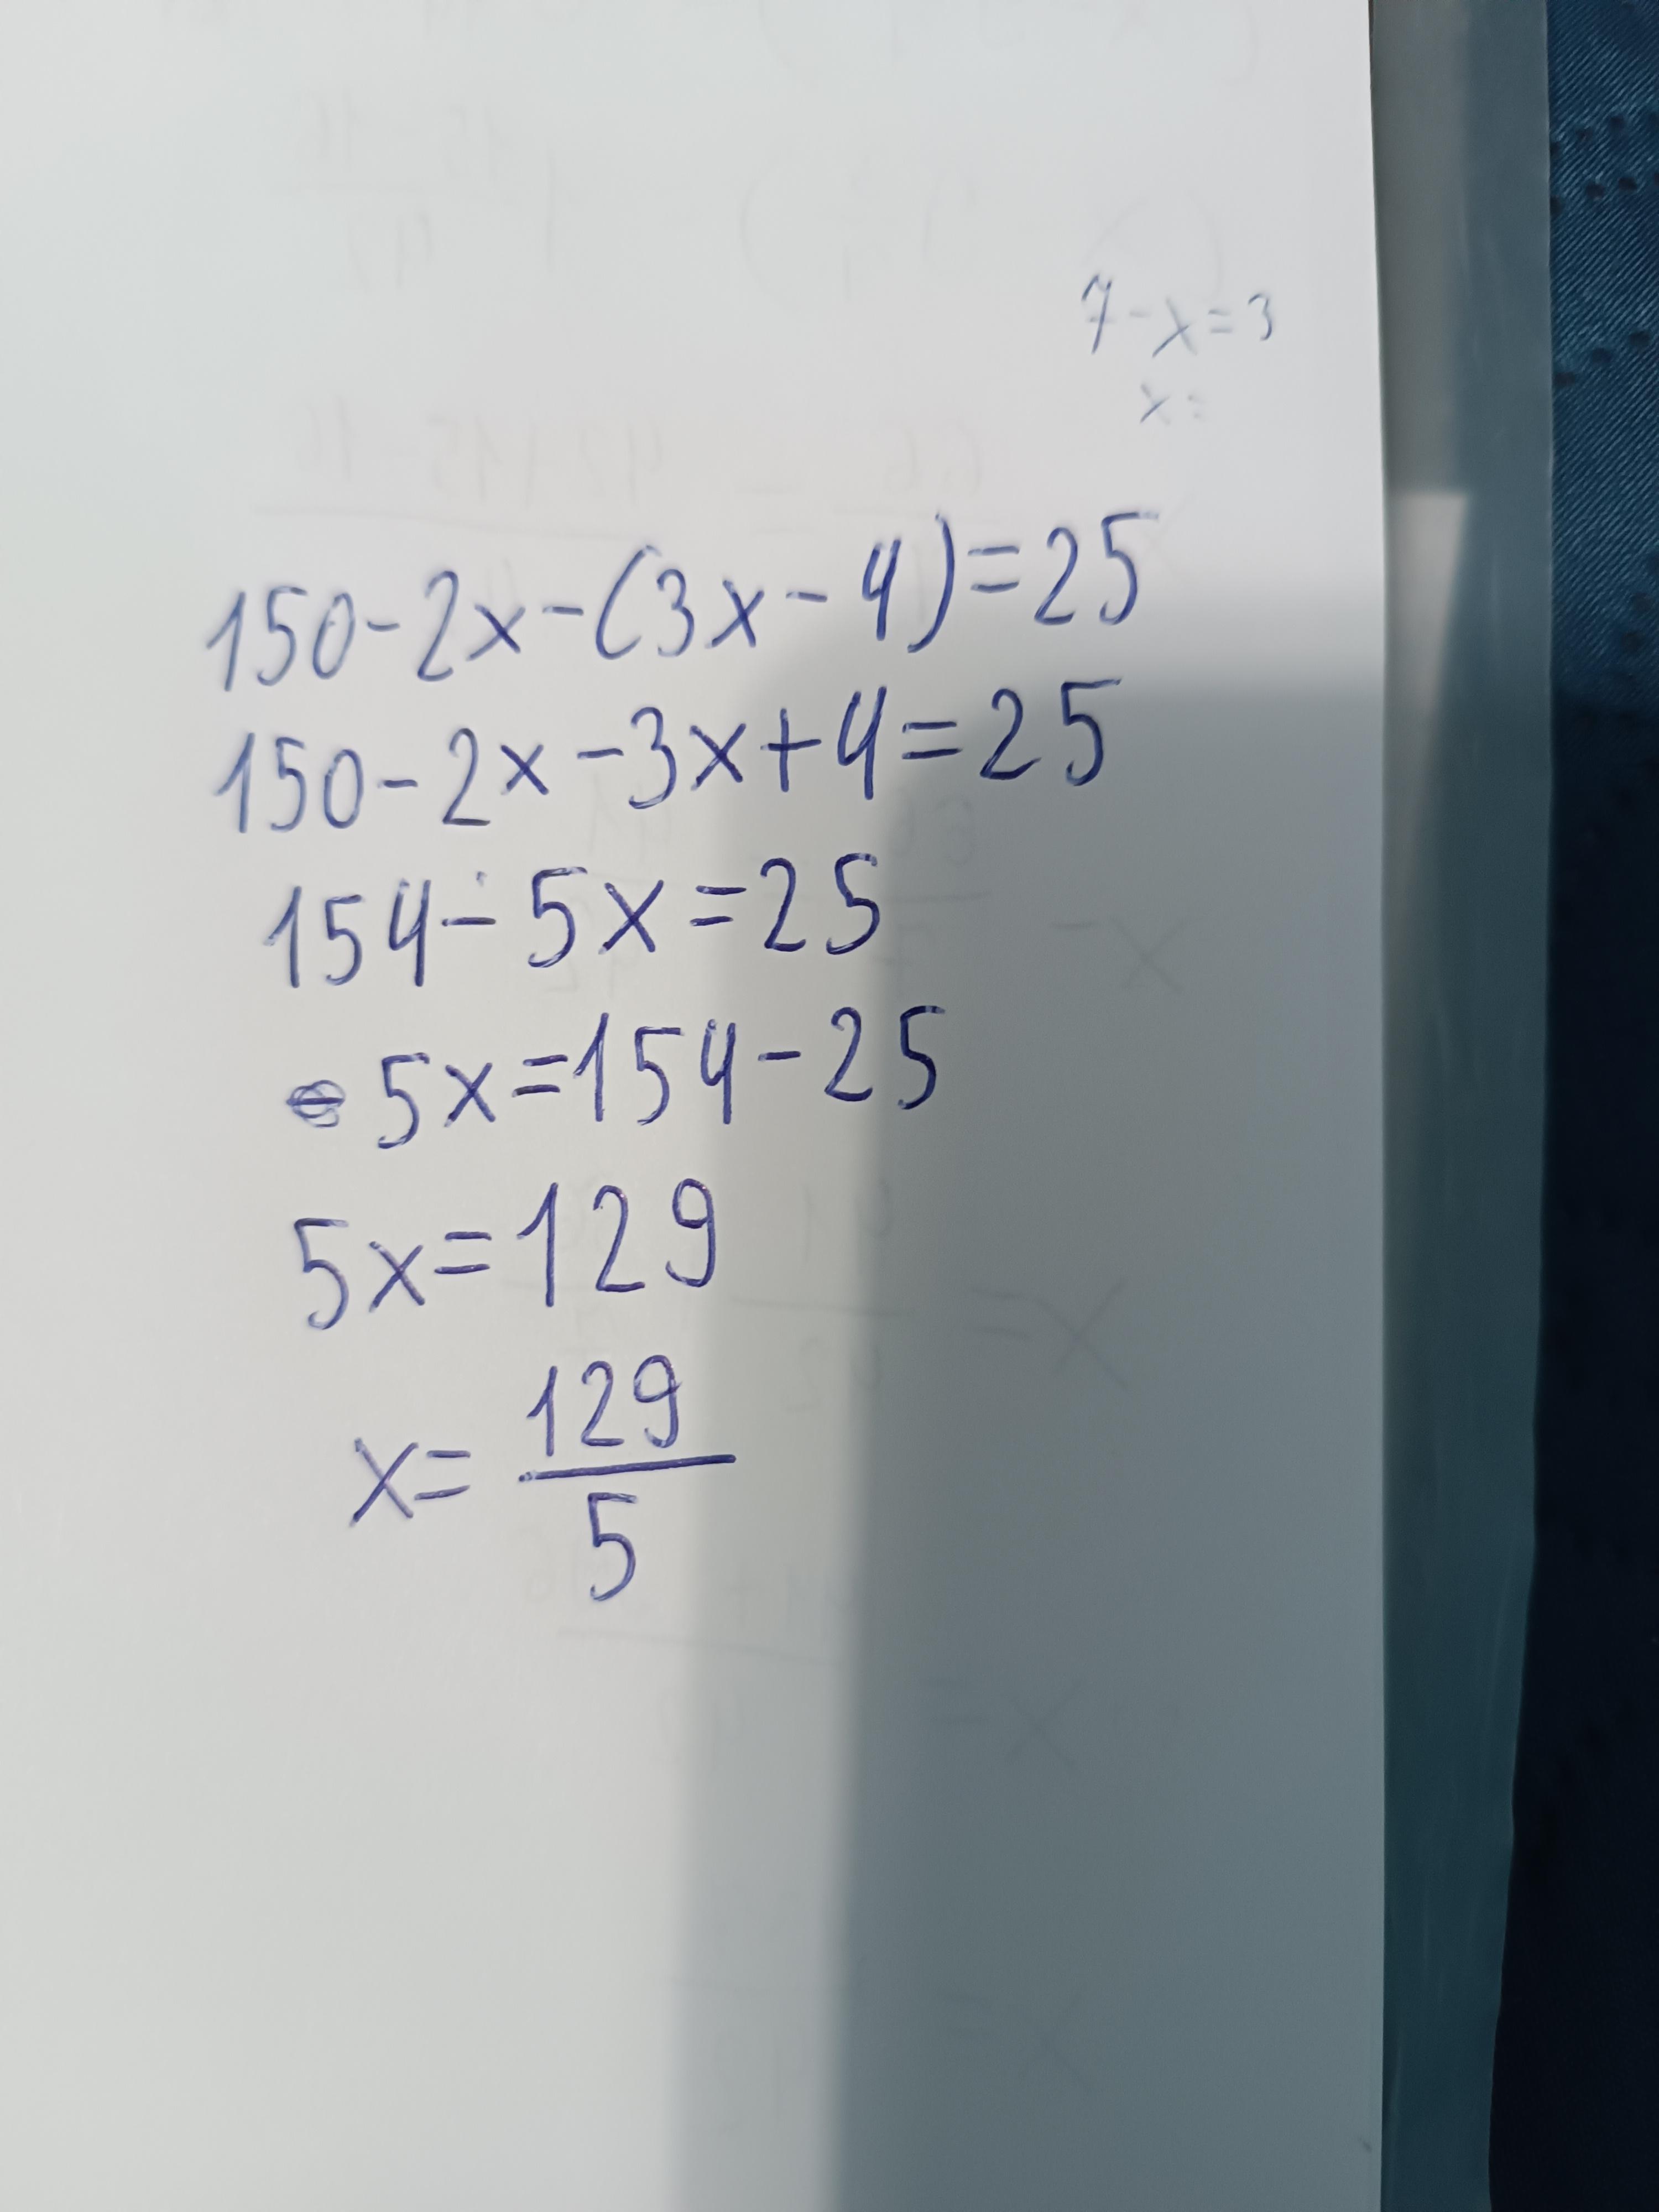 7-x=3
x=
150-2x-(3x-4)=25
150-2x-3x+4=25
154-5x=25
5x=154-25
5x=129
x=129/5